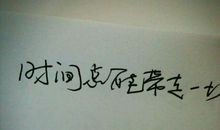 时间总会带走一切